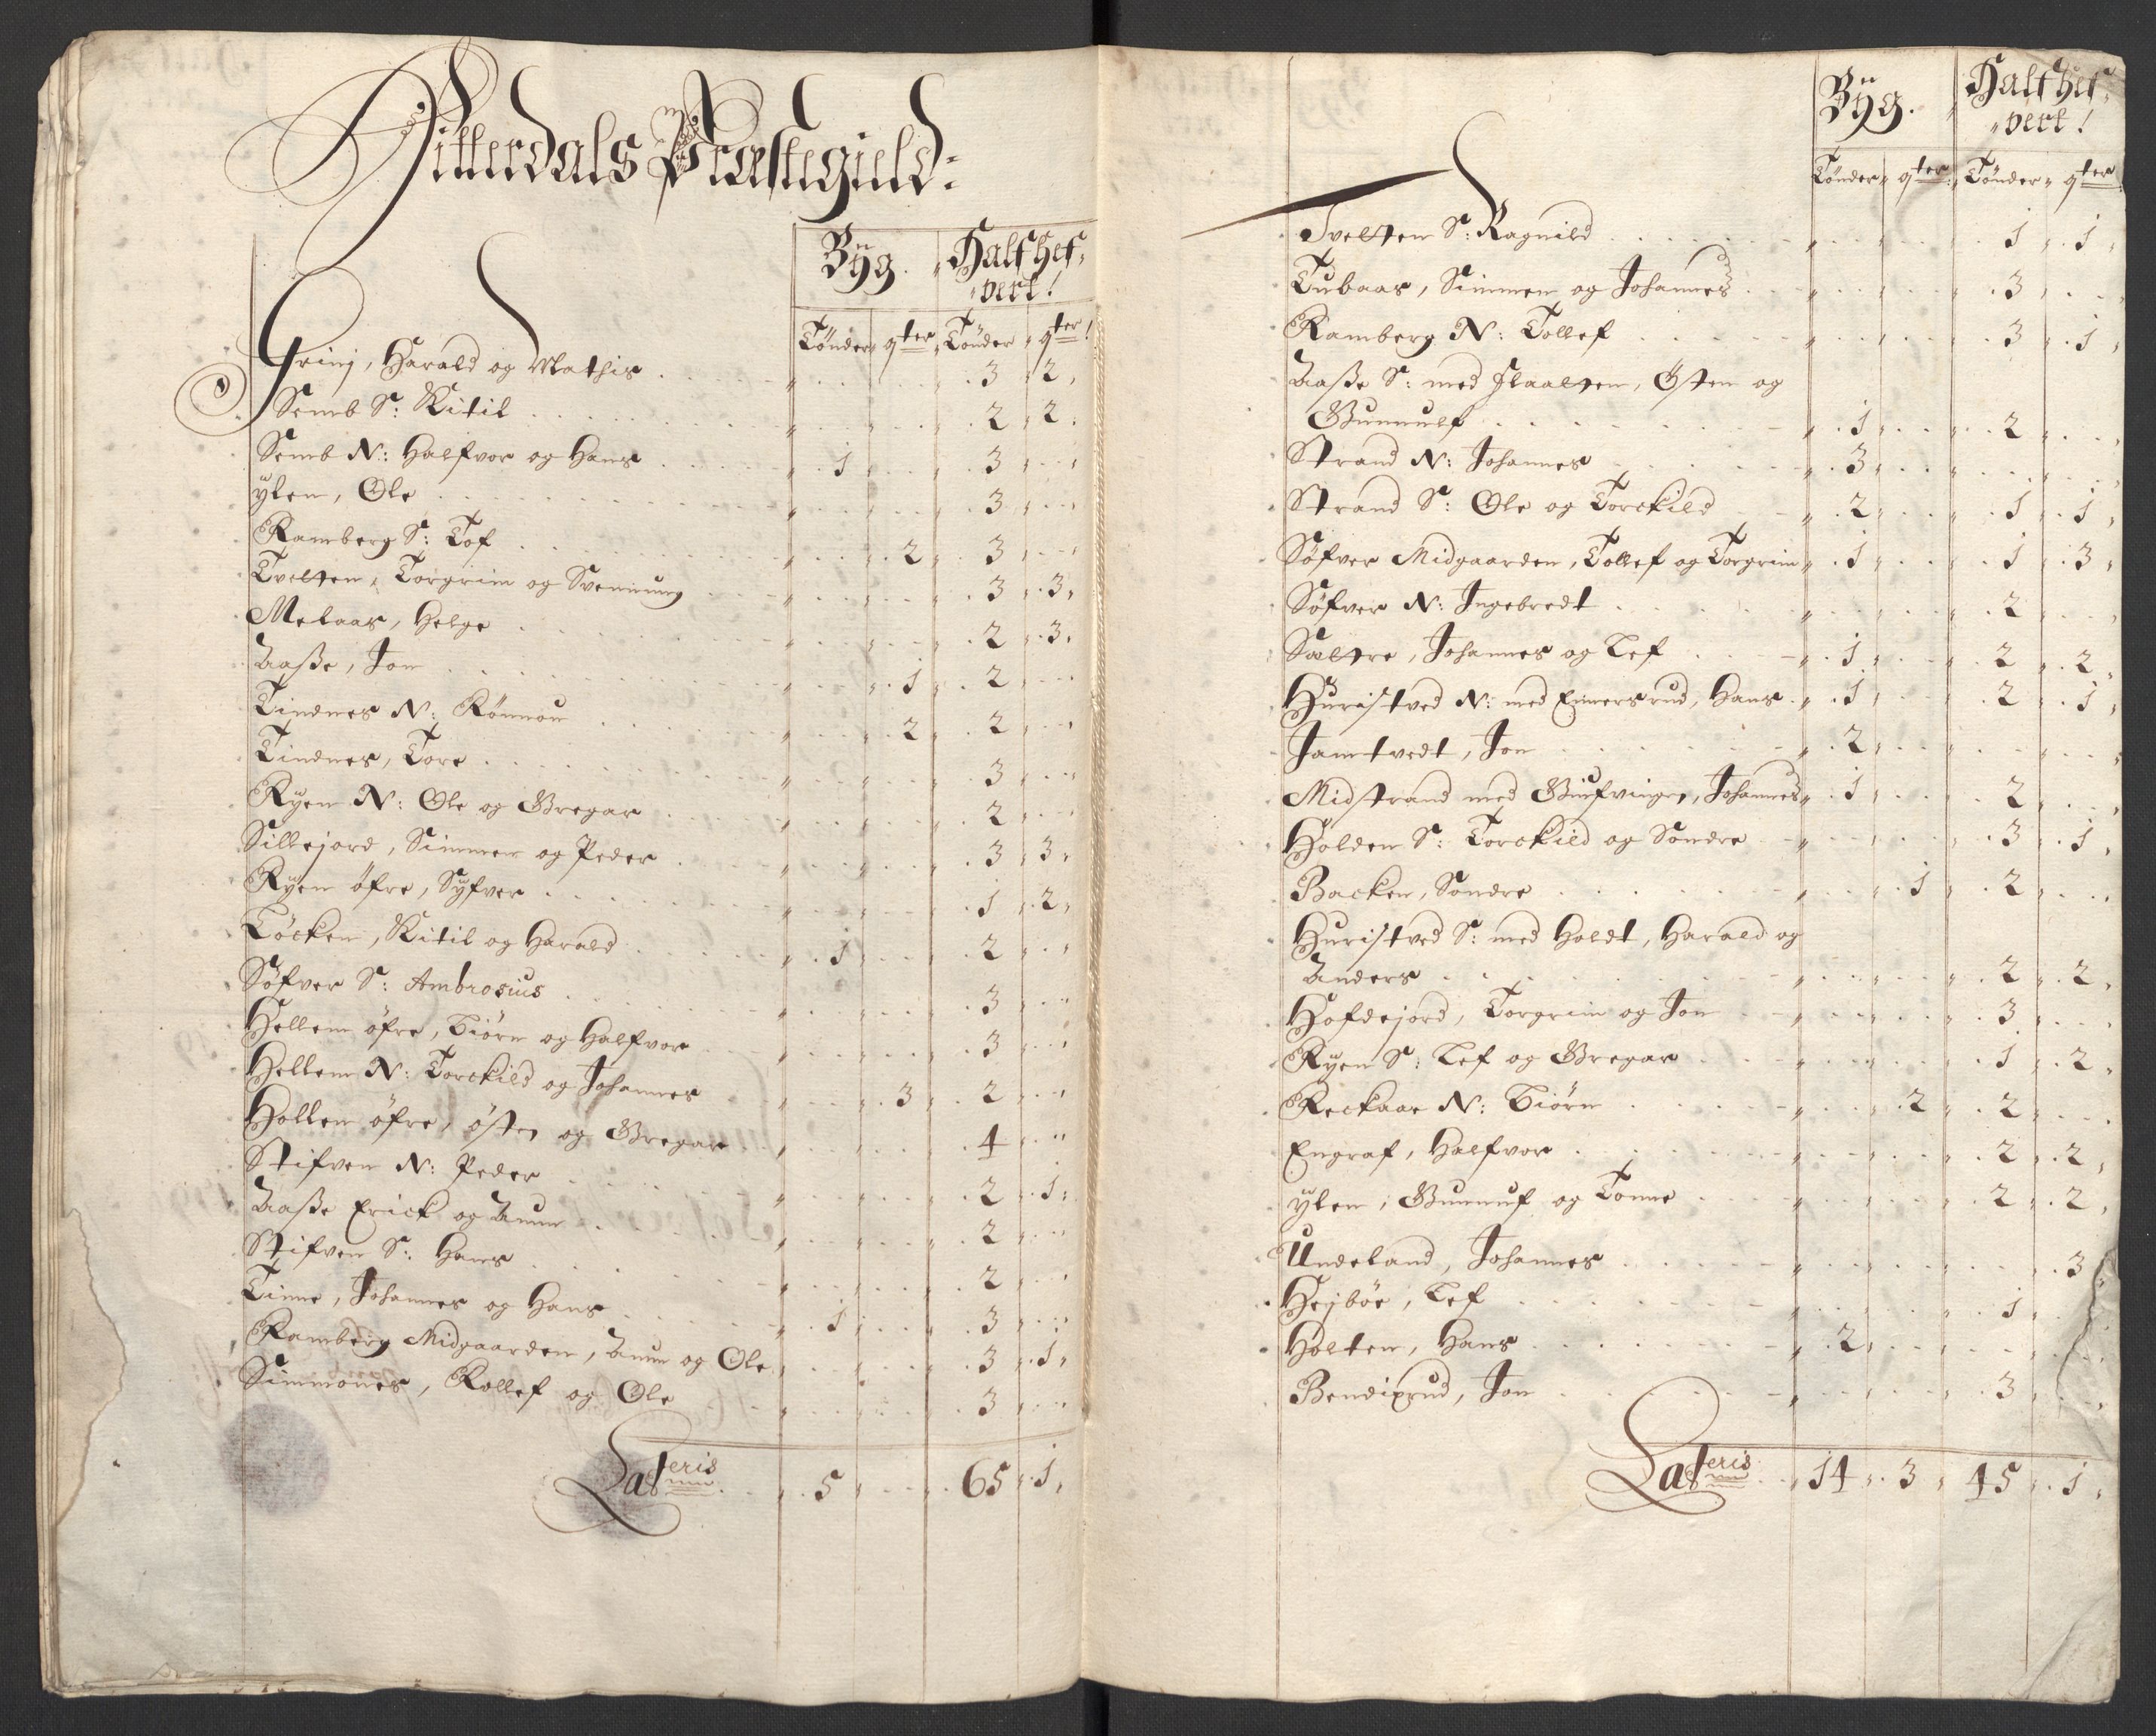 Hitterdals Præstegield:
Byg. Halfhef-
vert!
Tønder qter Tønder qter!
Grinj, Harald og Mathis . . . 3 2
Semb S: Kitil . . . 2 2
Semb N: Halfvor og Hans . . . 1 3
ÿlen, Ole . . . 3
Ramberg S: Tof . . . 2 3
Tvelten, Torgrim og Svennung . . . 3 3
Melaas, Helge . . . 2 3
Aasse, Jon . . . 1 2
Tindnes N: Rønnou . . . 2 2
Tindnes, Tore . . . 3
Ryen N: Ole og Gregar . . . 2
Sillejord, Simmen og Peder . . . 3 3
Rÿen øfre, Syfver . . . 1 2
Løcken, Kitil og Harald . . . 1 2
Søfver S: Ambrosius . . . 3
Hellem øfre, Biørn og Halfvor . . . 3
Hellem N: Torckild og Johannes . . . 3 2
Hollen øfre, østen og Gregar . . . 4
Stifven N: Peder . . . 2 1
Aasse Erick og Aamun . . . 2
Stifven S: Hans . . . 2
Tinne, Johannes og Hans . . . 1 3
Ramberg Midgaarden, Aamun og Ole . . . 3 1
Simmones, Rollef og Ole . . . 3
Lateris . . . 5 65 1
Byg. Halfhef-
vert!
Tønder qter Tønder qter
Tvelten S: Ragnild . . . 1 1
Tubaas, Simmen og Johannes . . . 3
Ramberg N: Tollef . . . 3 1
Aasse S: med Flaalten, Østen og
Gunnulf . . . 1 2
Strand N: Johannes . . . 3
Strand S: Ole og Torckild . . . 2 1 1
Søfver Midgaarden, Tollef og Torgrim 1 1 3
Søfver N: Ingebredt . . . 2
Sæltre, Johannes og Lef . . . 1 2 2
Huristved N: med Einersrud, Hans . 1 2 1
Jamtvedt, Jon . . . 2
Midstrand med Giufvingen, Johannes 1 2
Holden S: Torckild og Sondre . . . 3 1
Backen, Sondre . . . 1 2
Huristved S: med Holdt, Harald og
Anders . . . 2 2
Hofdejord, Torgrim og Jon . . . 3
Ryen S: Lef og Gregar . . . 1 2
Reckaae N: Biørn . . . 2 2
Engraf, Halfvor . . . 2 2
ÿlen, Gunnuf og Tonne . . . 2 2
Undeland, Johannes . . . 3
Hejbøe, Lef . . . 1
Holten, Hans . . . 2
Bendixrud, Jon . . . 3
Lateris . . 14 3 45 1